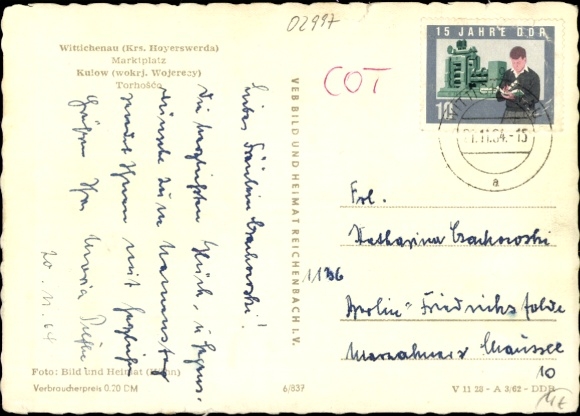 02997
Wittichenau (Krs. Hoyerswerda)
Marktplatz
Kulow (wokrj. Wojerecy)
Torhošćo
COT
15 JAHRE DDR
10
.11.64.-15
a
VEB BILD UND HEIMAT REICHENBACH I. V.
Liebes Fräulein Czachowski!
Die herzlichsten Glück- u. Segens-
wünsche zum Namenstag
sendet Ihnen mit herzlichen
Grüßen Ihre Maria
20. 11. 64
Frl.
Katharina Czachowski
1136
Berlin-Friedrichsfelde
Marzahner Chaussee
10
Foto: Bild und Heimat (Hahn)
Verbraucherpreis 0.20 DM
6/837
V 11 28 - A 3/62 - DDR